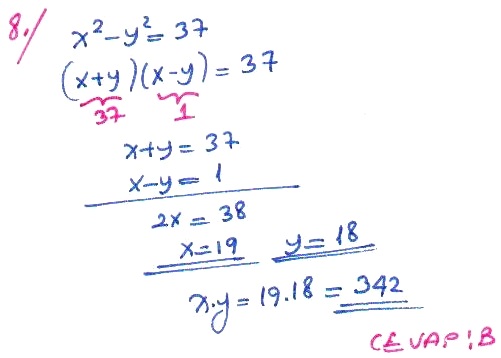 8./ x² - y² = 37
(x+y)(x-y) = 37
37 1
x+y = 37
x-y = 1
2x = 38
x=19 y=18
x.y = 19.18 = 342
CEVAP: B